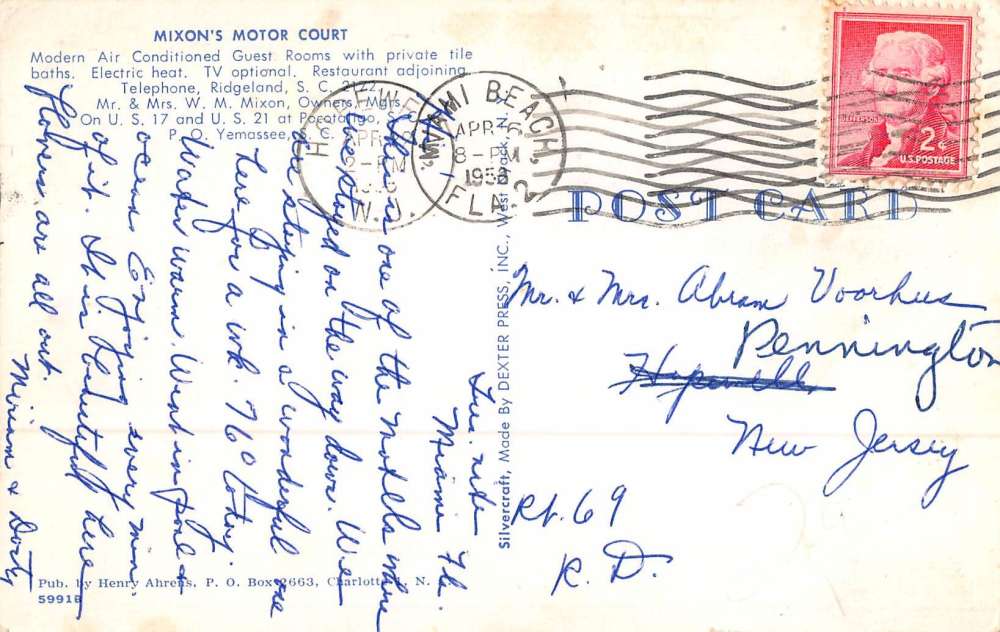 MIXON'S MOTOR COURT
Modern Air Conditioned Guest Rooms with private tile
baths. Electric heat. TV optional. Restaurant adjoining.
Telephone, Ridgeland, S. C. 2122
Mr. & Mrs. W. M. Mixon, Owners, Mgrs.
On U. S. 17 and U. S. 21 at Pocotaligo, S. C.
P. O. Yemassee, S. C.
MIAMI BEACH,
APR
8-PM
1958
FLA. 2
N. J.
JEFFERSON
2¢
U.S. POSTAGE
POST CARD
Tues. nite
Miami Fla.
This is one of the Motells where
we stayed on the way down. We
are staying in a wonderful one
here for a wk. 76° today.
Water warm. Went in pool &
ocean. Enjoying every min.
of it. It is beautiful here
flowers are all out.
Miriam & Doris
Silvercraft, Made By DEXTER PRESS, INC., West Nyack, N. Y.
Mr. & Mrs. Abram Voorhees
Pennington
Hopewell
New Jersey
Rt. 69
R. D.
Pub. by Henry Ahrens, P. O. Box 2663, Charlotte 1, N. C.
5991B